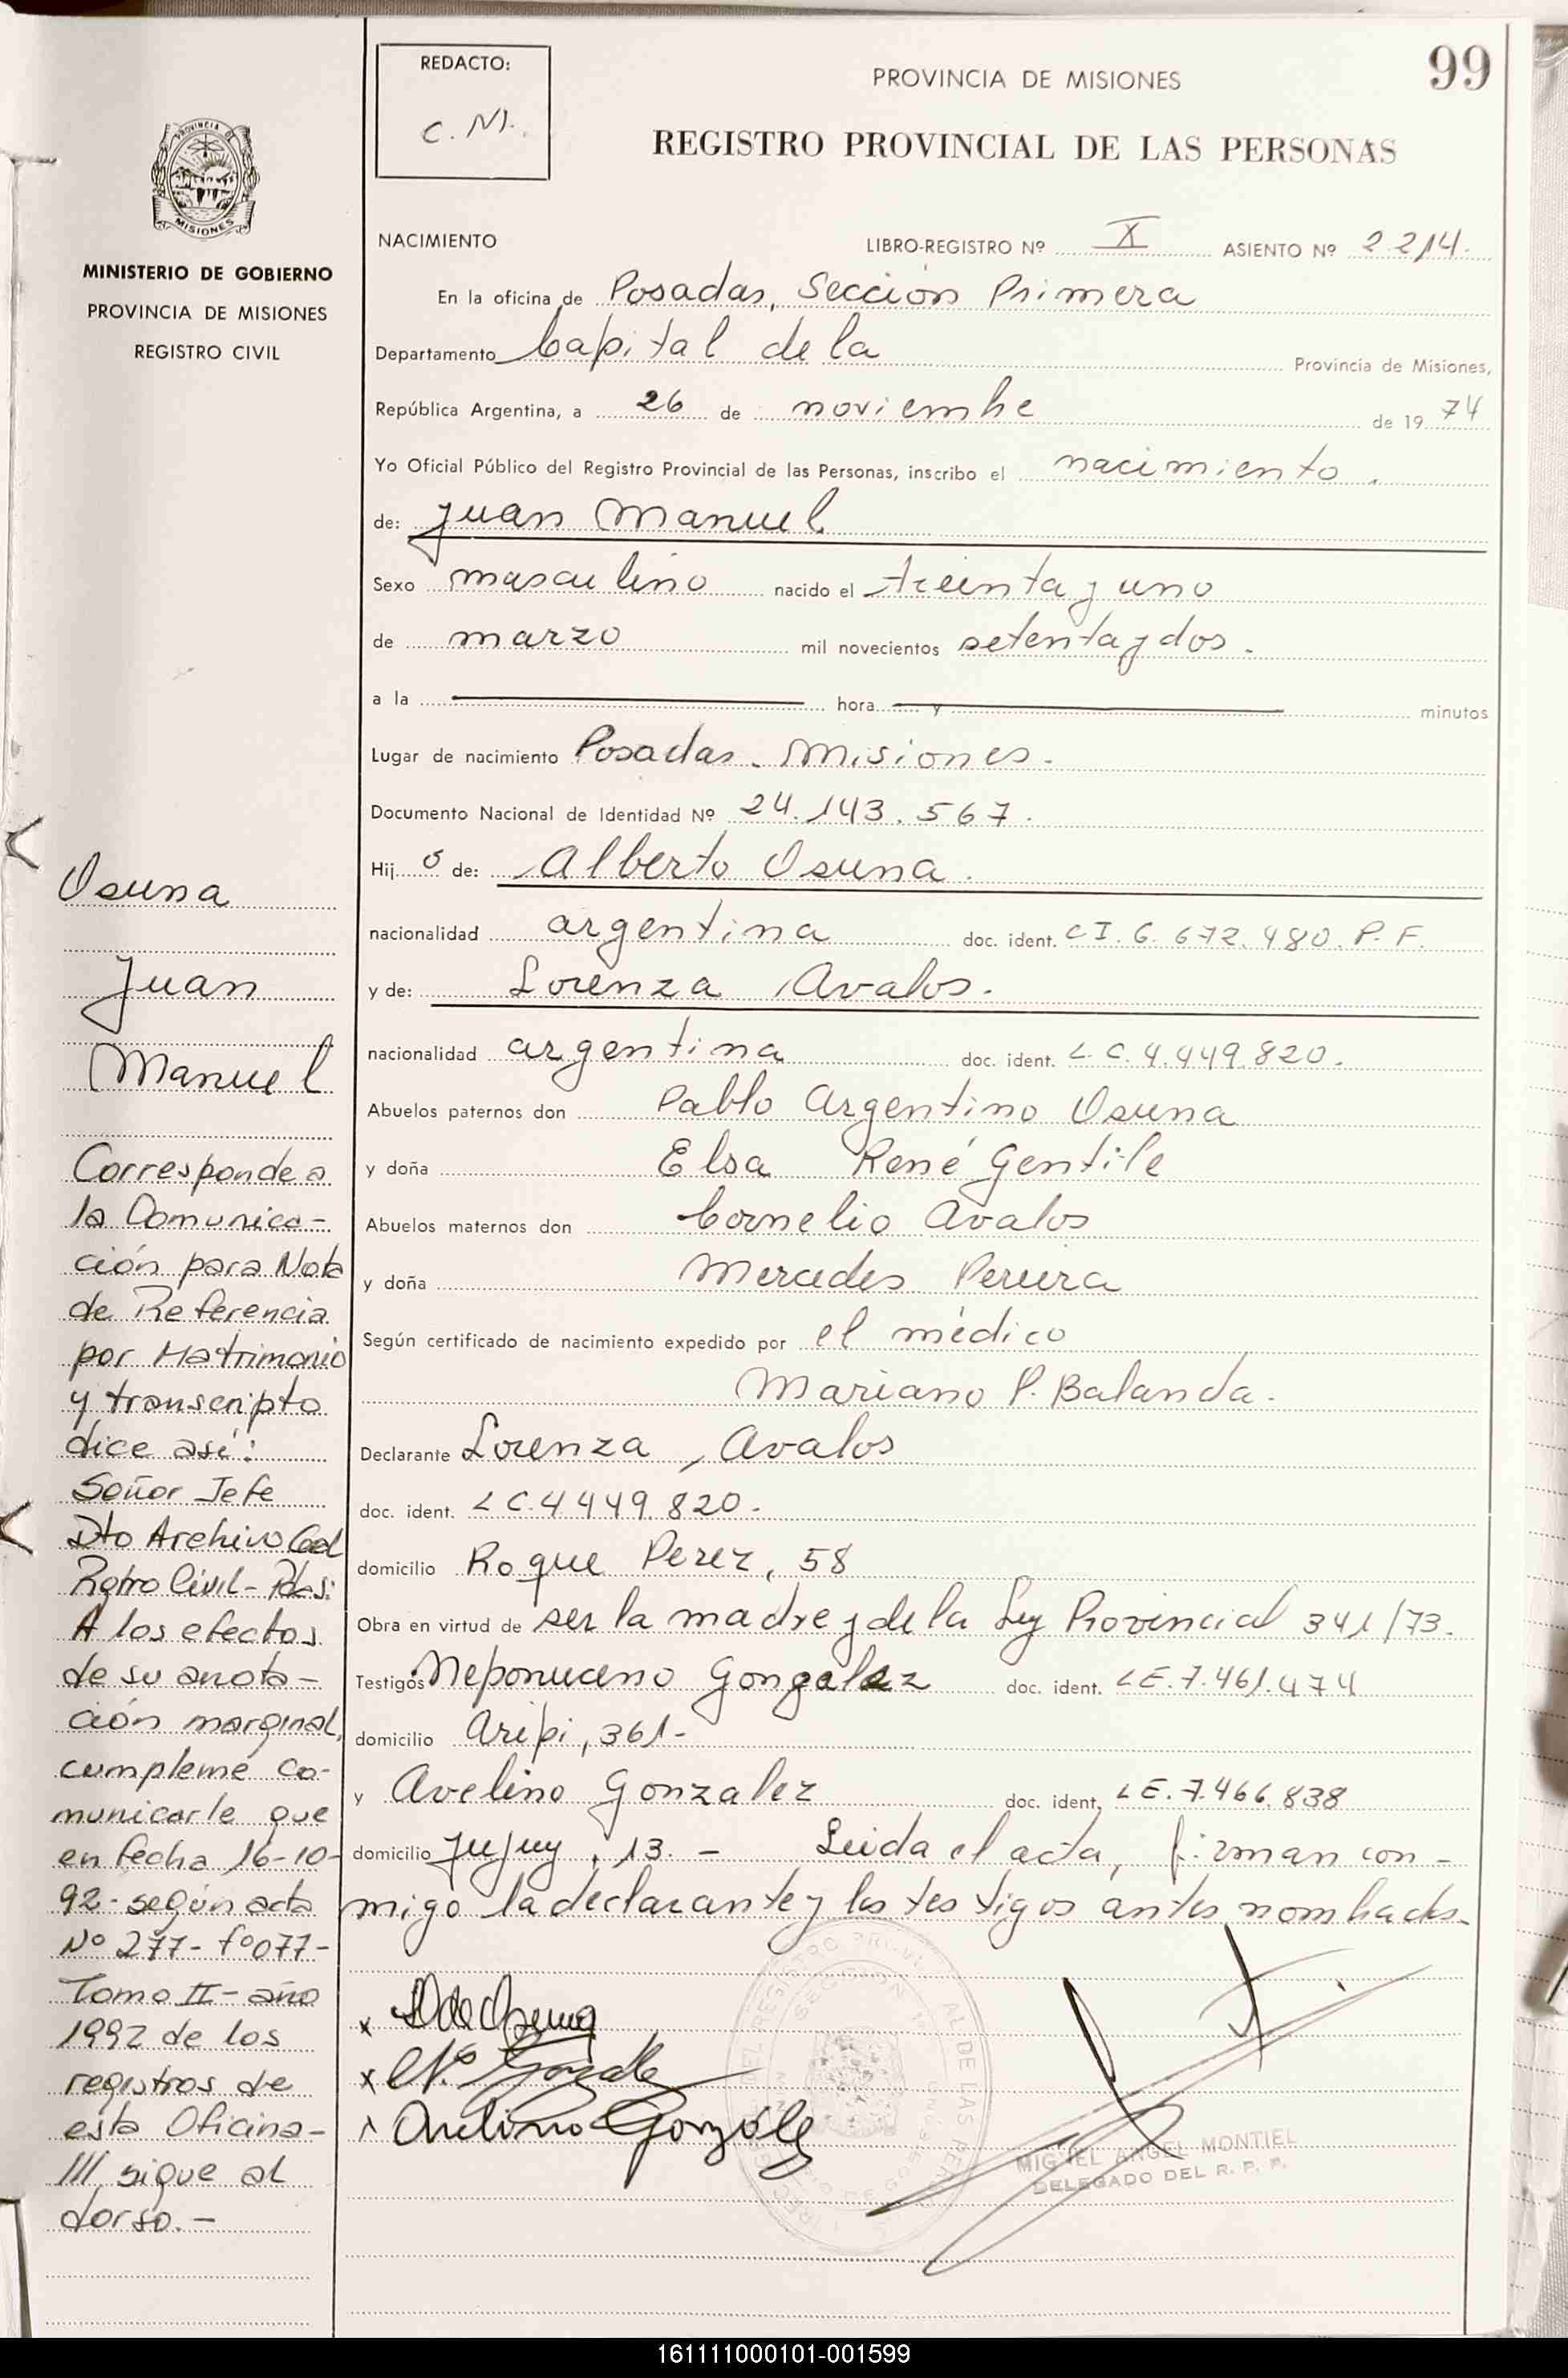 REDACTO:
C. M.
PROVINCIA DE MISIONES
99
REGISTRO PROVINCIAL DE LAS PERSONAS
PROVINCIA DE
MISIONES
MINISTERIO DE GOBIERNO
PROVINCIA DE MISIONES
REGISTRO CIVIL
NACIMIENTO
LIBRO-REGISTRO Nº X ASIENTO Nº 2214.
En la oficina de Posadas, Sección Primera
Departamento Capital de la Provincia de Misiones,
República Argentina, a 26 de noviembre de 1974
Yo Oficial Público del Registro Provincial de las Personas, inscribo el nacimiento.
de: Juan Manuel
Sexo masculino nacido el treinta y uno
de marzo mil novecientos setenta y dos.
a la hora y minutos
Lugar de nacimiento Posadas. Misiones.
Documento Nacional de Identidad Nº 24.143.567.
Hijo de: Alberto Osuna.
nacionalidad argentina doc. ident. C I. 6. 672. 480. P. F.
y de: Lorenza Avalos.
nacionalidad argentina doc. ident. L. C. 4.449.820.
Abuelos paternos don Pablo Argentino Osuna
y doña Elsa René Gentile
Abuelos maternos don Cornelio Avalos
y doña Mercedes Pereira
Según certificado de nacimiento expedido por el médico
Mariano P. Balanda.
Declarante Lorenza, Avalos
doc. ident. L C. 4449.820.
domicilio Roque Perez, 58
Obra en virtud de ser la madre y de la Ley Provincial 341/73.
Testigos Neponuceno Gonzalez doc. ident. LE. 7.461.474
domicilio Aripi, 361-
y Avelino Gonzalez doc. ident. LE. 7.466.838
domicilio Jujuy, 13. - Leida el acta, firman con-
migo la declarante y los testigos antes nombrados.
x
x N. Gonzalez
Avelino González
MIGUEL ANGEL MONTIEL
DELEGADO DEL R. P. P.
Osuna
Juan
Manuel
Corresponde a
la Comunica-
ción para Nota
de Referencia
por Matrimonio
y transcripto
dice así:
Señor Jefe
Dto Archivo Gral
Rgtro Civil - Pdas:
A los efectos
de su anota-
ción marginal,
cumpleme co-
municarle que
en fecha 16-10-
92- según acta
Nº 277- fº077-
Tomo II- año
1992 de los
registros de
esta Oficina-
/// sigue al
dorso.-
161111000101-001599